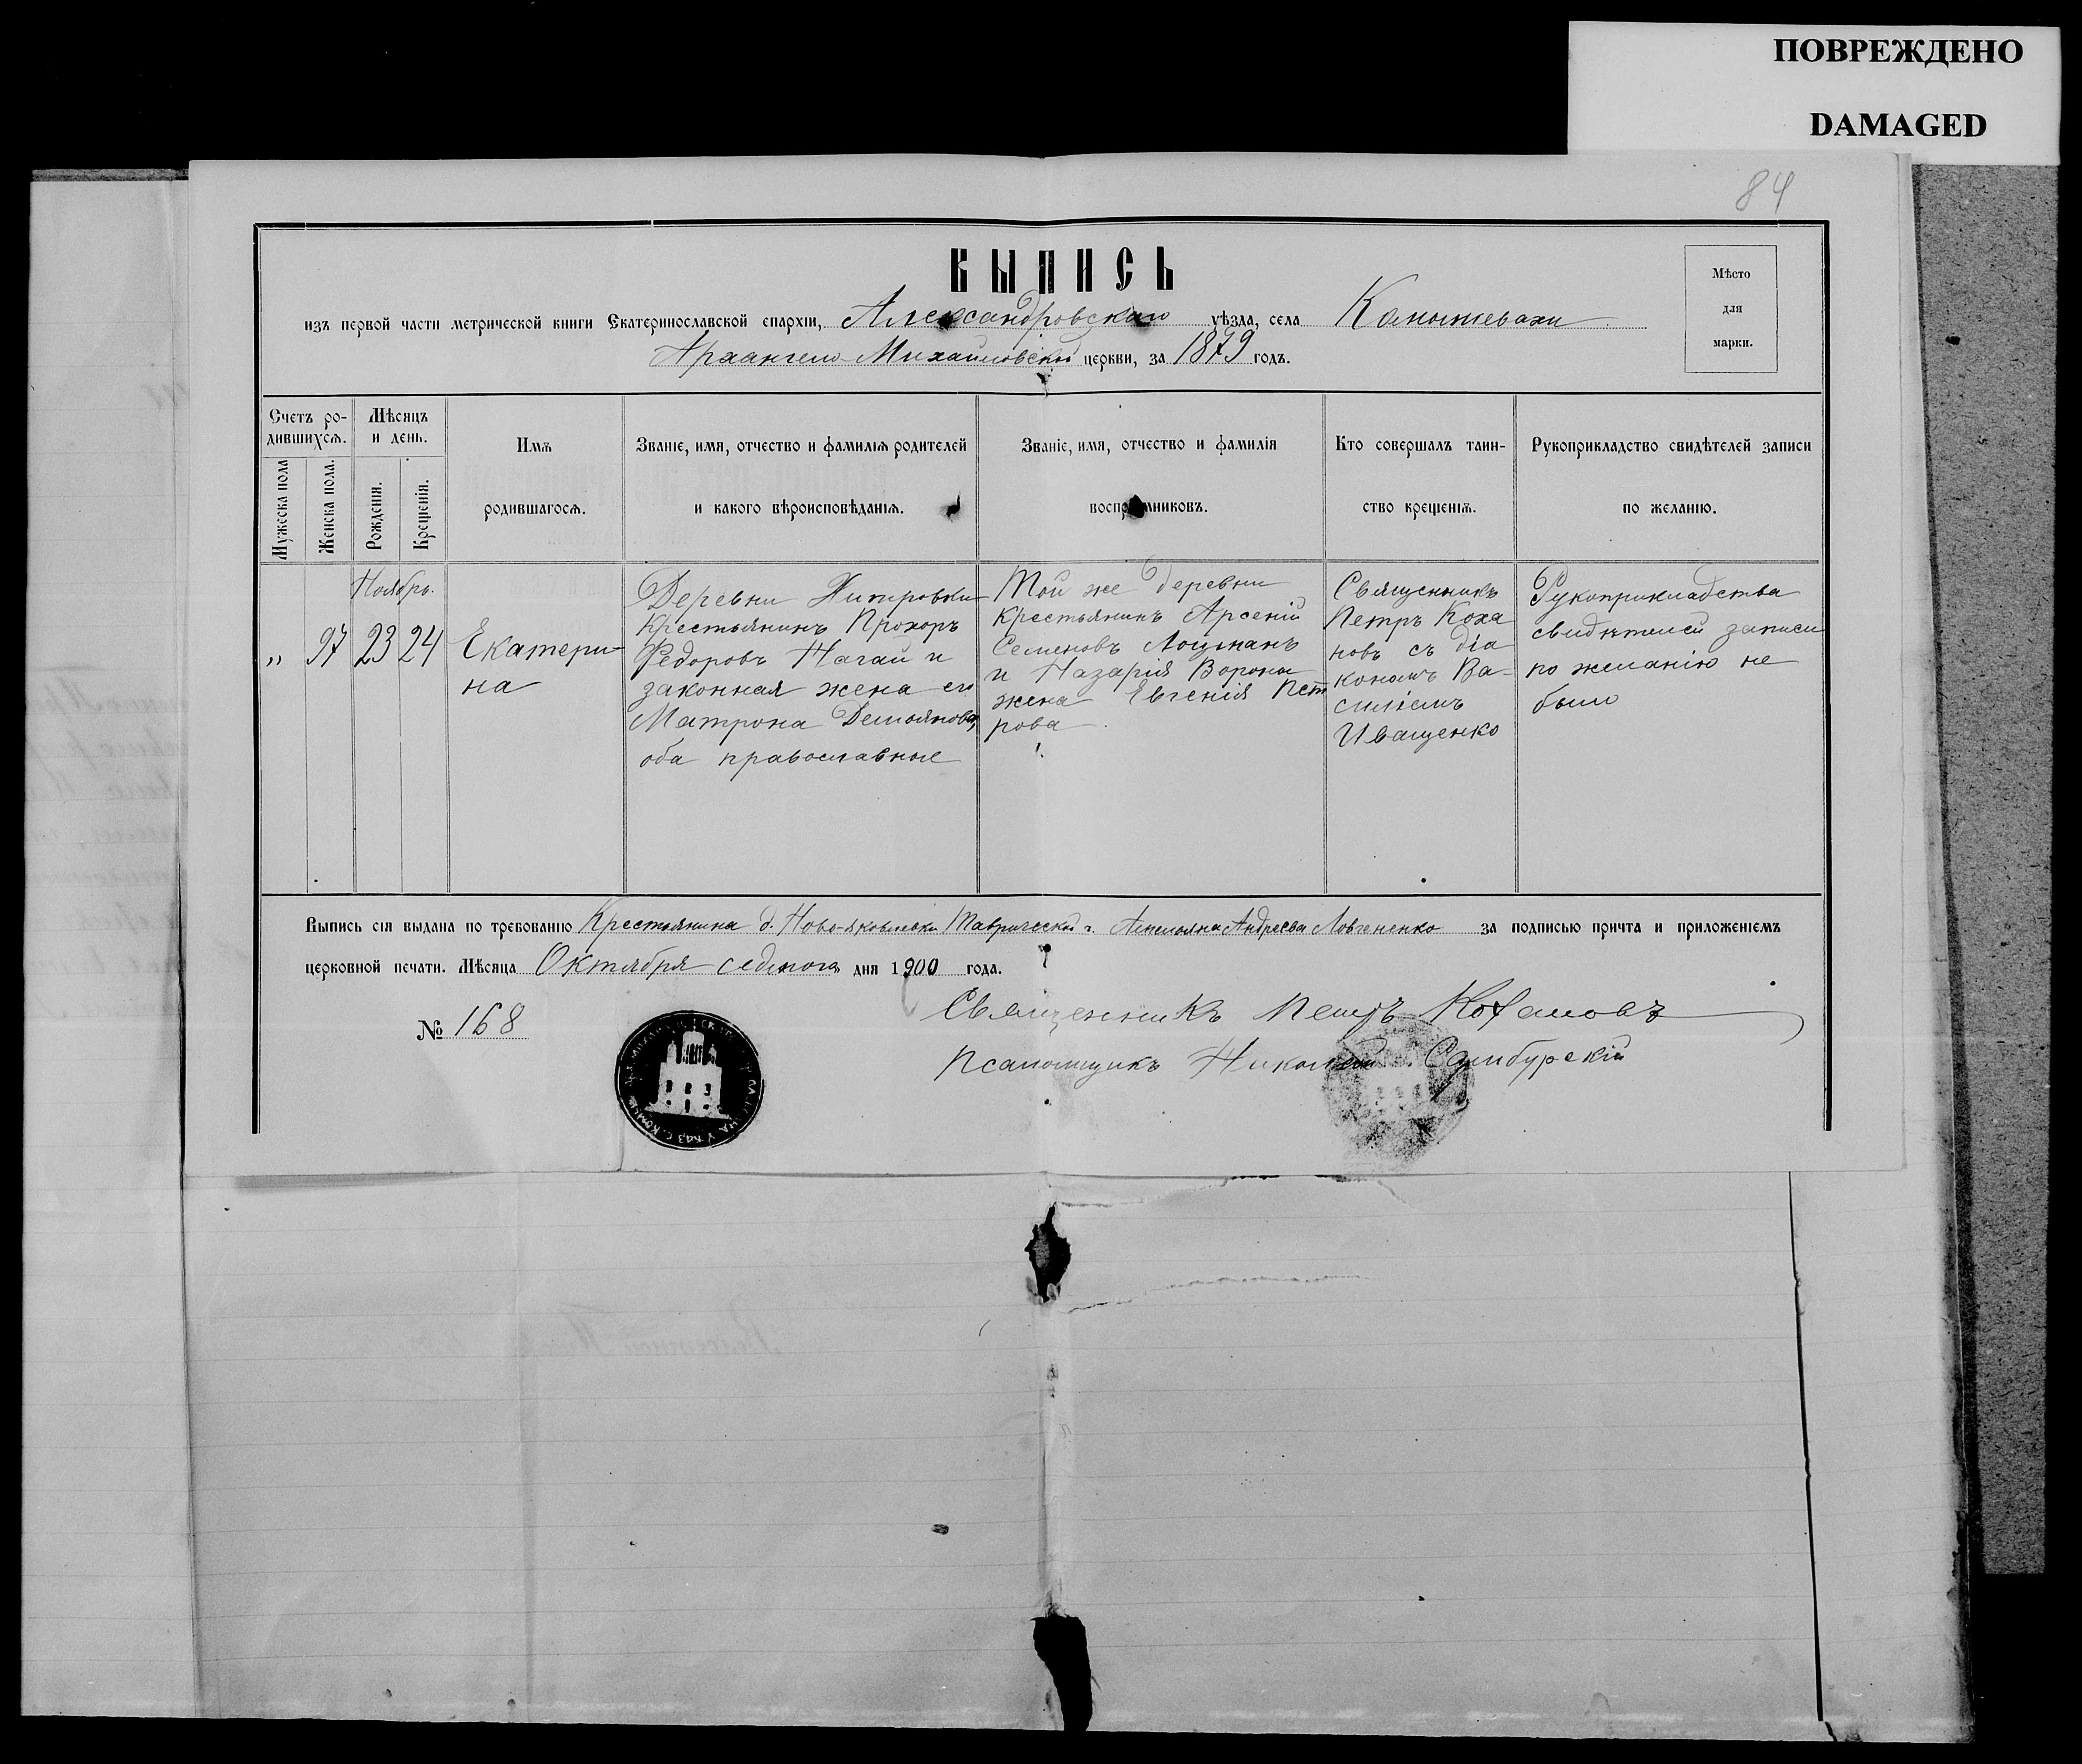 ПОВРЕЖДЕНО
DAMAGED
84
ВЫПИСЬ
Мѣсто
для
марки.
изъ первой части метрической книги Екатеринославской епархіи, Александровскаго уѣзда, села Камышевахи
Архангело-Михайловской церкви, за 1879 годъ.
Счетъ ро-
дившихся.
Мужеска пола
Женска пола.
Мѣсяцъ
и день.
Рожденія.
Крещенія.
Имя
родившагося.
Званіе, имя, отчество и фамилія родителей
и какого вѣроисповѣданія.
Званіе, имя, отчество и фамилія
воспріемниковъ.
Кто совершалъ таин-
ство крещенія.
Рукоприкладство свидѣтелей записи
по желанію.
Ноябрь.
„ 97 23 24
Екатери-
на
Деревни Хитровки
Крестьянинъ Прохоръ
Федоровъ Нагай и
законная жена его
Матрона Демьянова,
оба православные
Той же деревни
Крестьянинъ Арсеній
Семеновъ Лоцманъ
и Назарія Ворона
жена Евгенія Пет
рова
Священникъ
Петръ Коха
новъ съ діа
кономъ Ва-
силіемъ
Иващенко
Рукоприкладства
свидѣтелей записи
по желанію не
было
Выпись сія выдана по требованію Крестьянина д. Ново-Яковлевки Таврической г. Андреева за подписью причта и приложеніемъ
церковной печати. Мѣсяца Октября седмого дня 1900 года.
№ 168
Священникъ Петръ Кохановъ
Псаломщикъ Николай Самбурскій